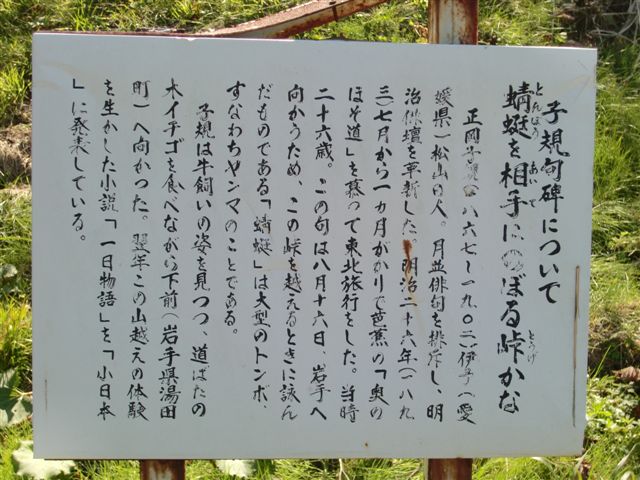 子規句碑について
蜻蜒を相手にのぼる峠かな
正岡子規(一八六七〜一九〇二)伊予(愛
媛県)松山の人。月並俳句を排斥し、明
治俳壇を革新した。明治二十六年(一八九
三)七月から一カ月がかりで芭蕉の「奥の
ほそ道」を慕って東北旅行をした。当時
二十六歳。この句は八月十六日、岩手へ
向かうため、この峠を越えるときに詠ん
だものである「蜻蜒」は大型のトンボ、
すなわちヤンマのことである。
子規は牛飼いの姿を見つつ、道ばたの
木イチゴを食べながら下前(岩手県湯田
町)へ向かった。翌年この山越えの体験
を生かした小説「一日物語」を「小日本
」に発表している。